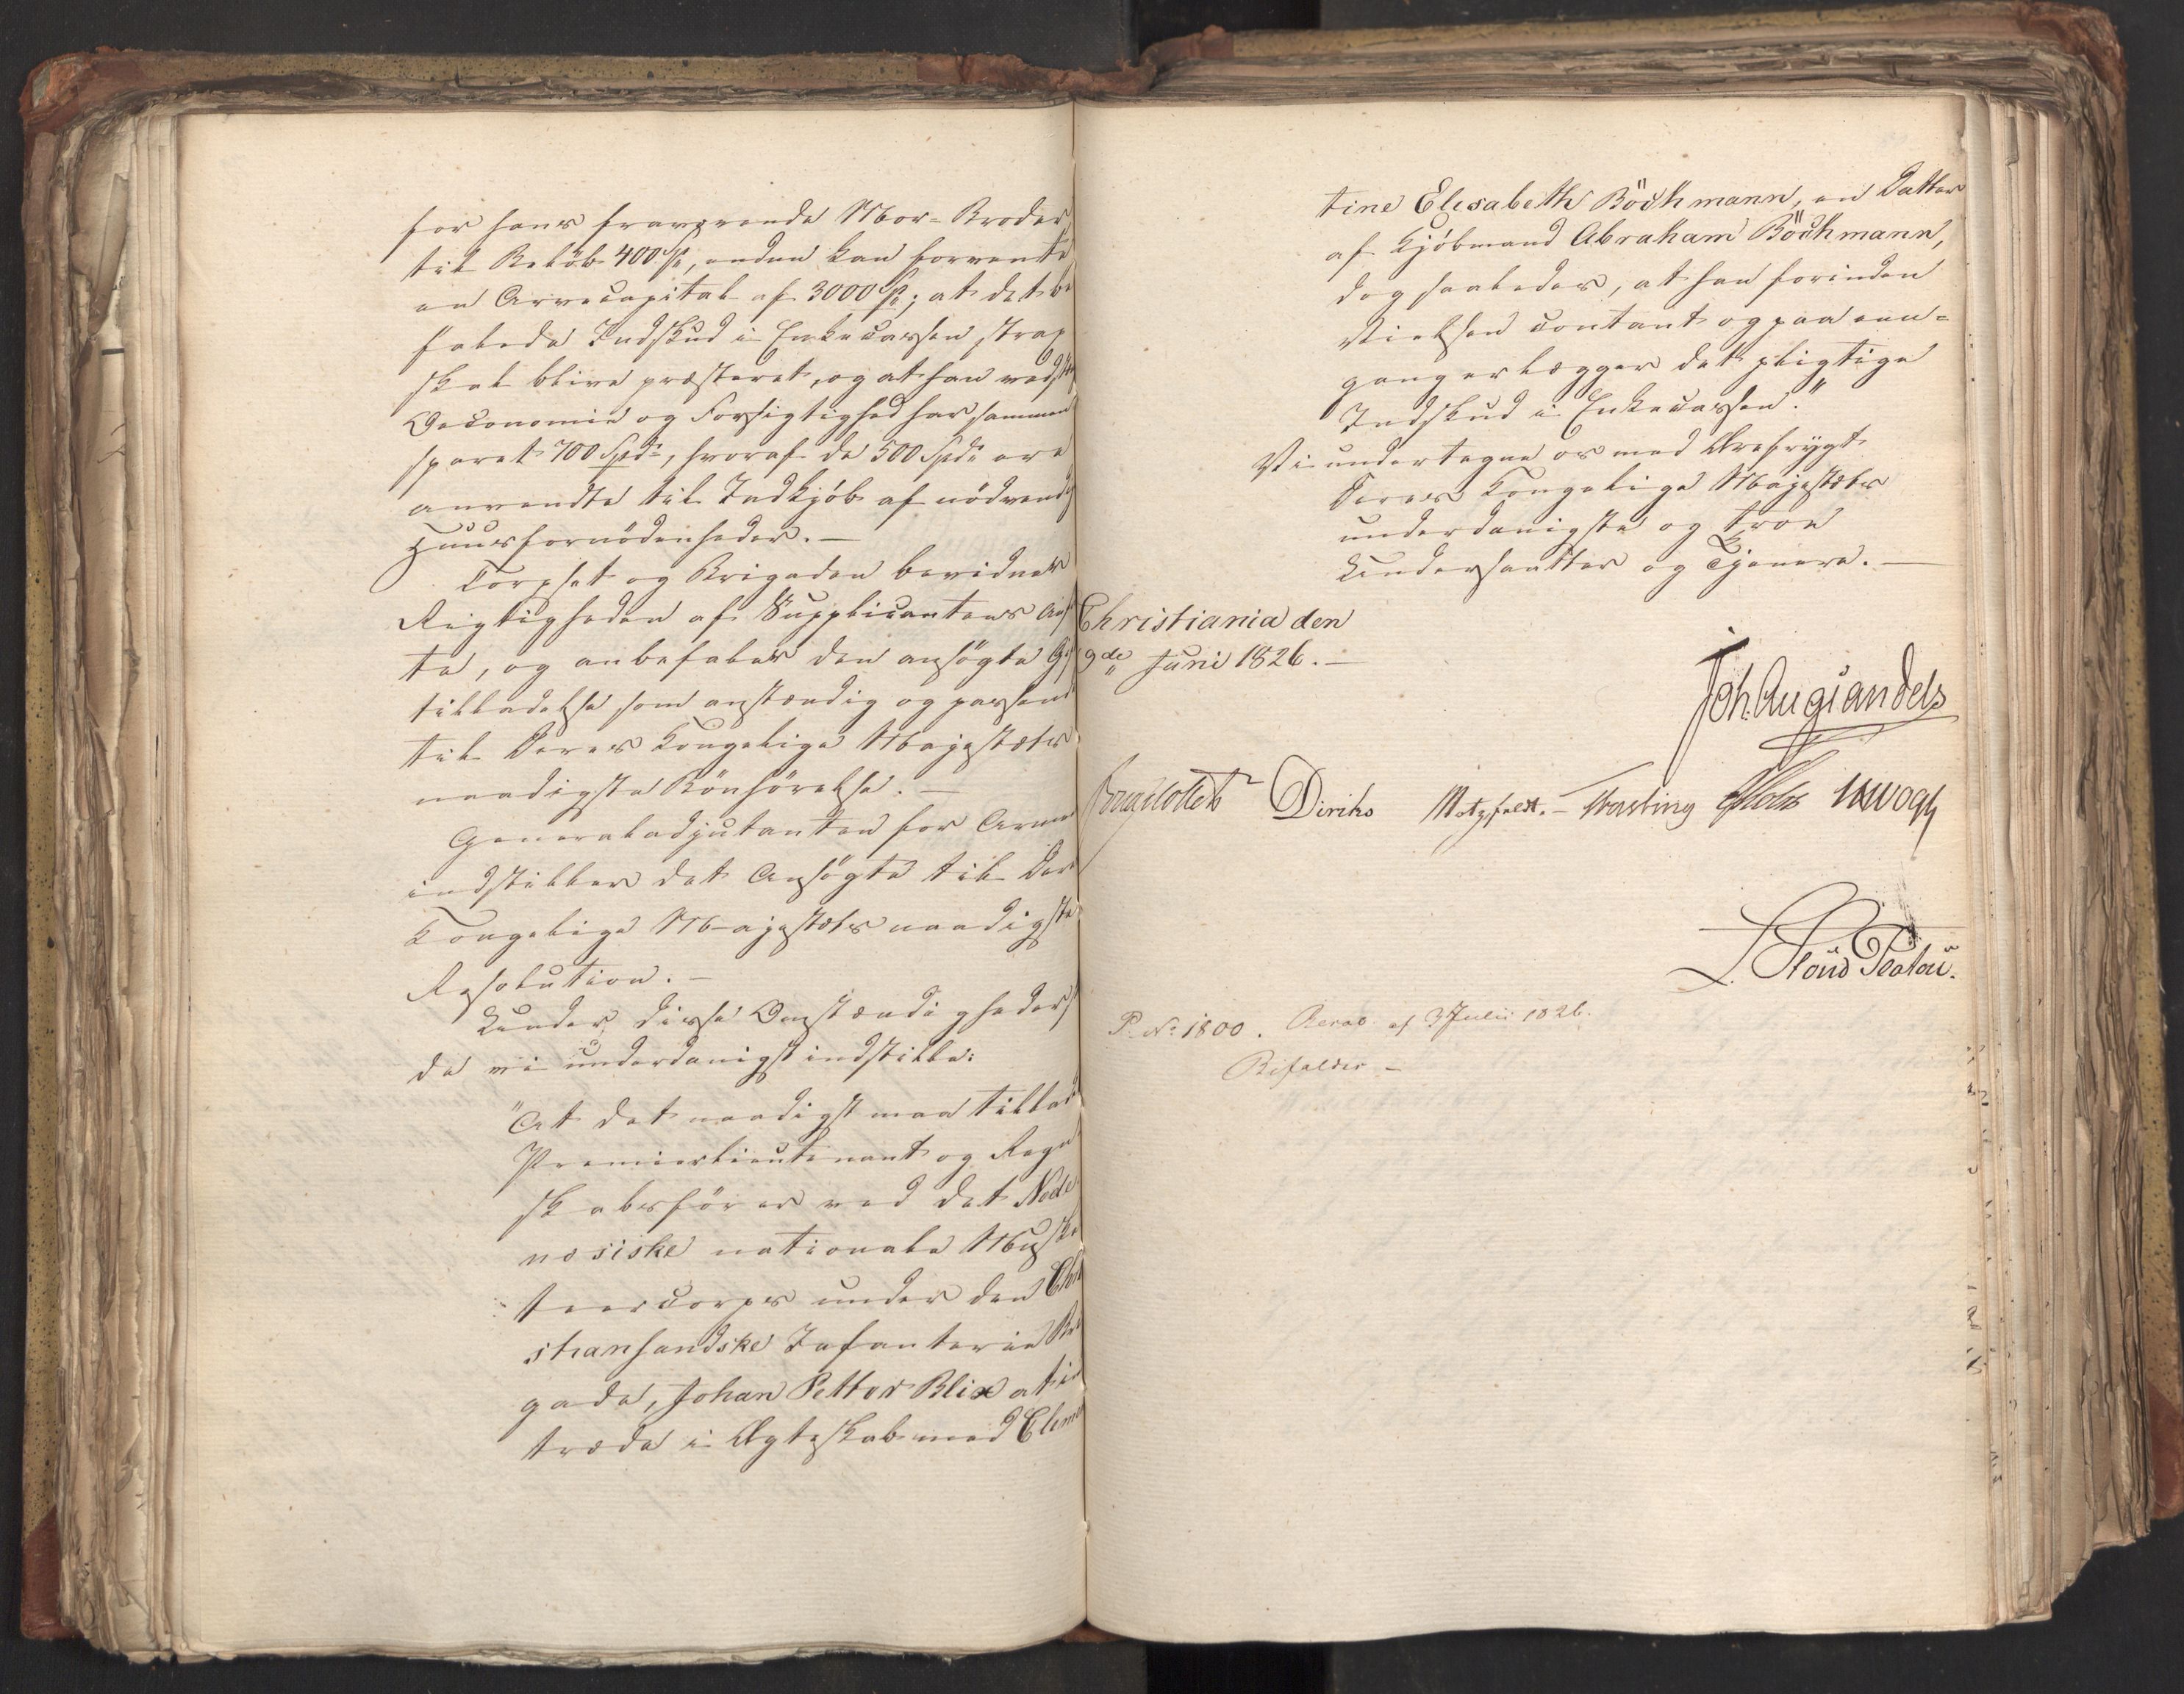 for hans fraværende Mor-Broder,
til Beløb 400 Sp, endnu kan forvente
en Arvecapital af 3000 Sp; at det be
falede Indskud i Enkecassen strax
skal blive præsteret, og at han ved
Oeconomie og Forsigtighed har sammen
sparet 700 Spd, hvoraf de 500 Spd ere
anvendte til Indkjøb af nødvendig
Huusfornødenheder. —
Corpset og Brigaden bevidner
Rigtigheden af Supplicantens Anf
te, og anbefaler den ansøgte Gif
tilladelse som anstændig og passende
til Deres Kongelige Majestæts
naadigste Bønhørelse. —
Generaladjutanten for Armeen
indstiller det Ansøgte til Deres
Kongelige Majestæts naadigste
Resolution. —
Under disse Omstændigheder
de vi underdanigst indstille:
"At det naadigst maa tillades
Premierlieutenant og Regn
skabsfører ved det Nede
nesiske nationale Muske
teercorps under den Chri
stiansandske Infanterie Bri
gade, Johan Petter Blix at ind
træde i Ægteskab med Clemen
tine Elisabeth Böckmann, en Datter
af Kjøbmand Abraham Böckmann,
dog saaledes, at han forinden
Vielsen contant og paa een-
gang erlægger det pligtige
Indskud i Enkecassen."
Vi undertegne os med Ærefrygt
Deres Kongelige Majestæts
underdanigste og troe
Undersaatter og Tjenere. —
Christiania den
9de Juni 1826. —
Joh. Aug. Sandels
Collett Diriks Motzfeldt. — Fasting Holst Vogt
L. Stoud Platou.
P. No 1800. Resol. af 3 Julii 1826.
Bifaldes —